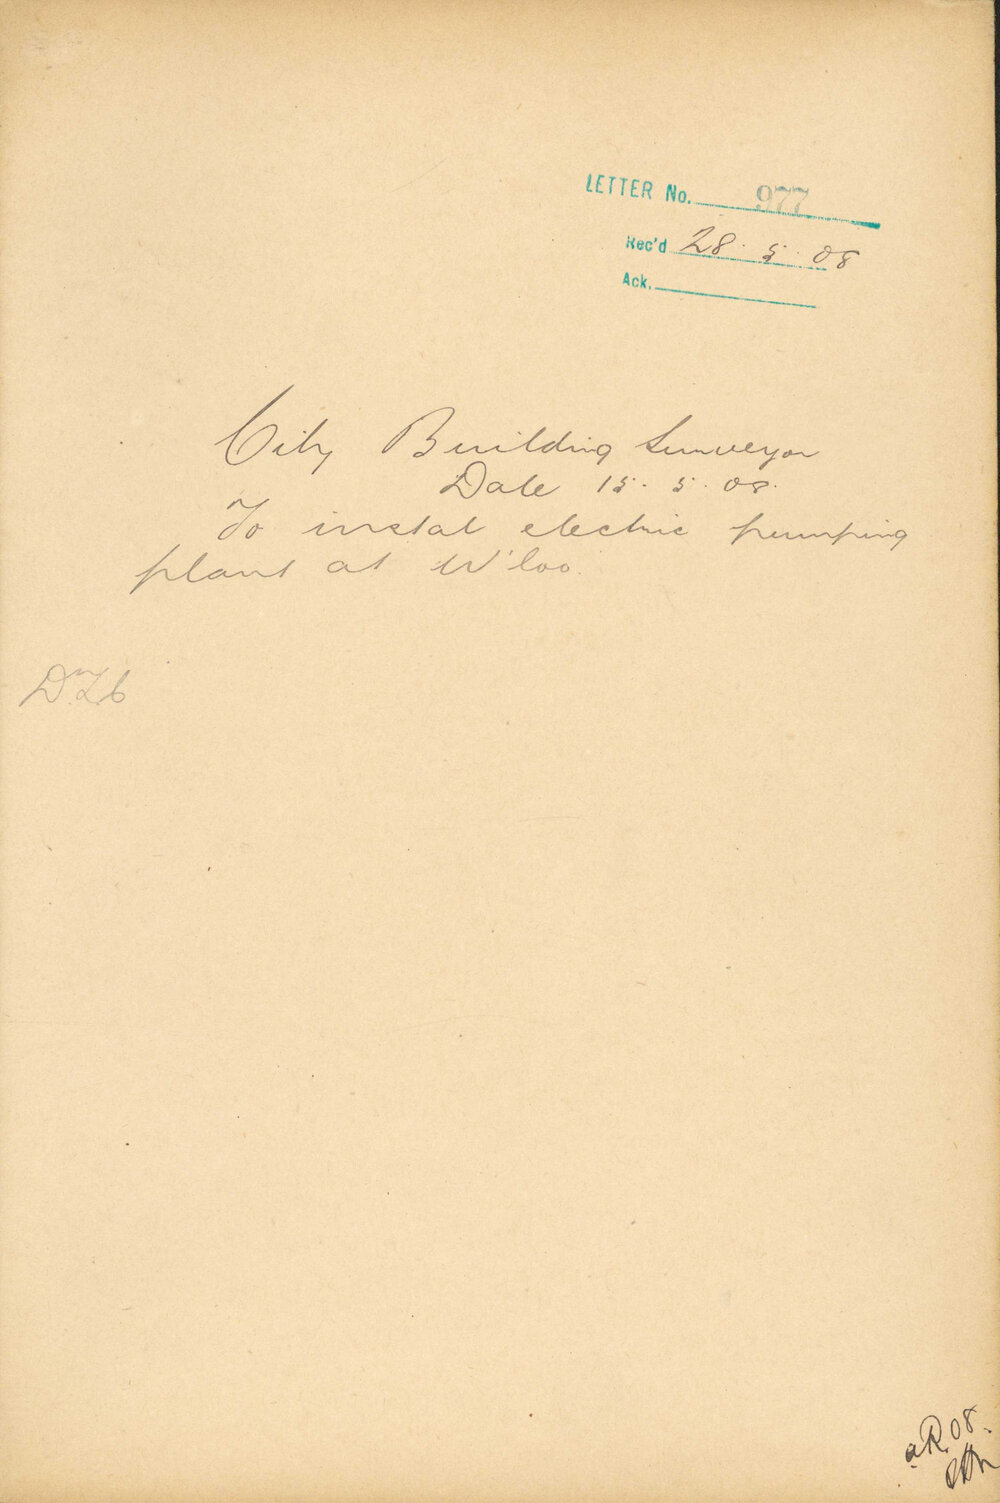 LETTER No. 977
Rec'd 28. 5. 08
Ack.
City Building Surveyor
Date 15. 5. 08.
To instal electric pumping
plant at W'loo.
a.R. 08.